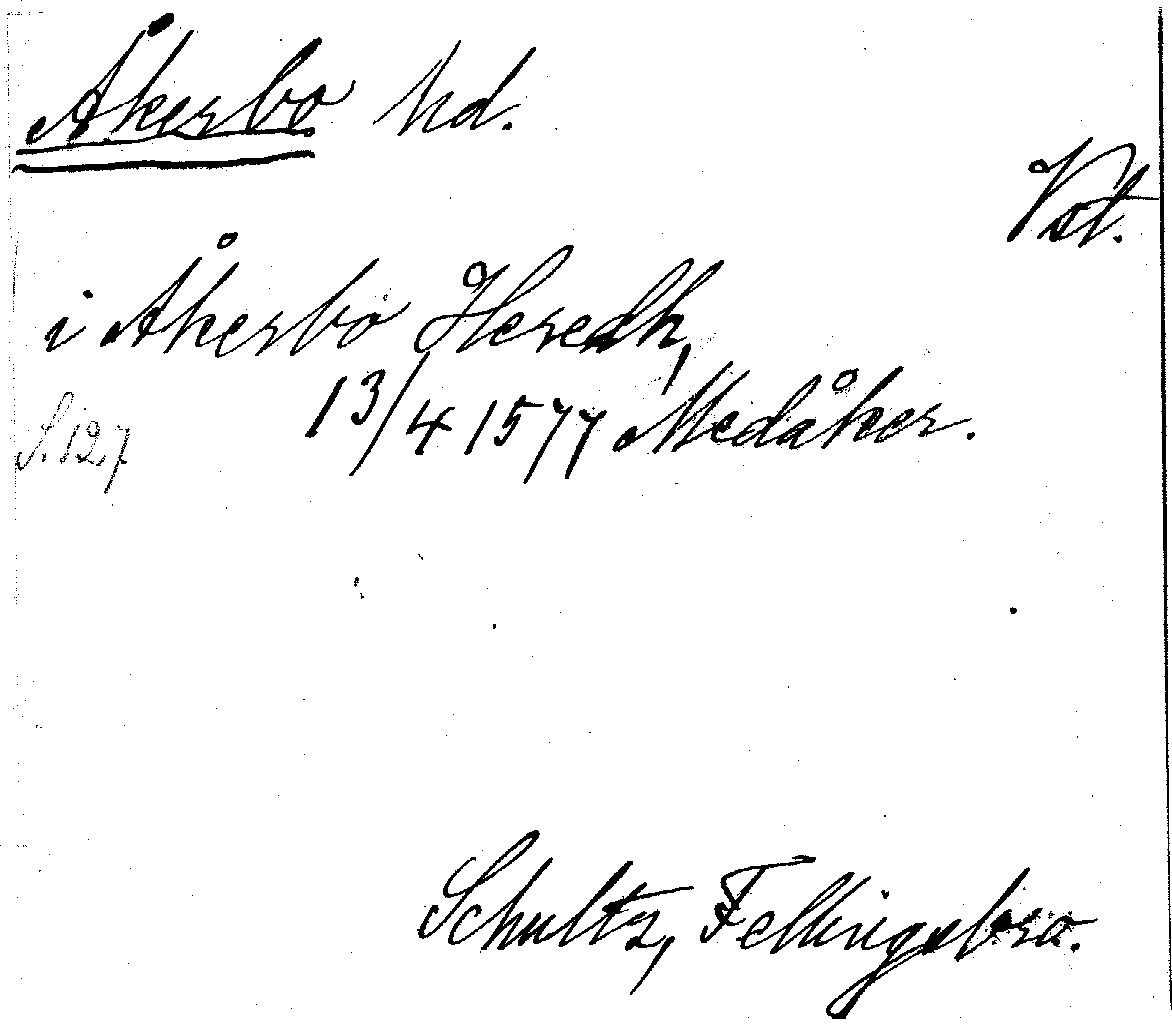 Åkerbo hd.
Vst.
i Åkerbo Heredh,
13/4 1577 Medåker.
S. 127
Schultz, Fellingsbro.